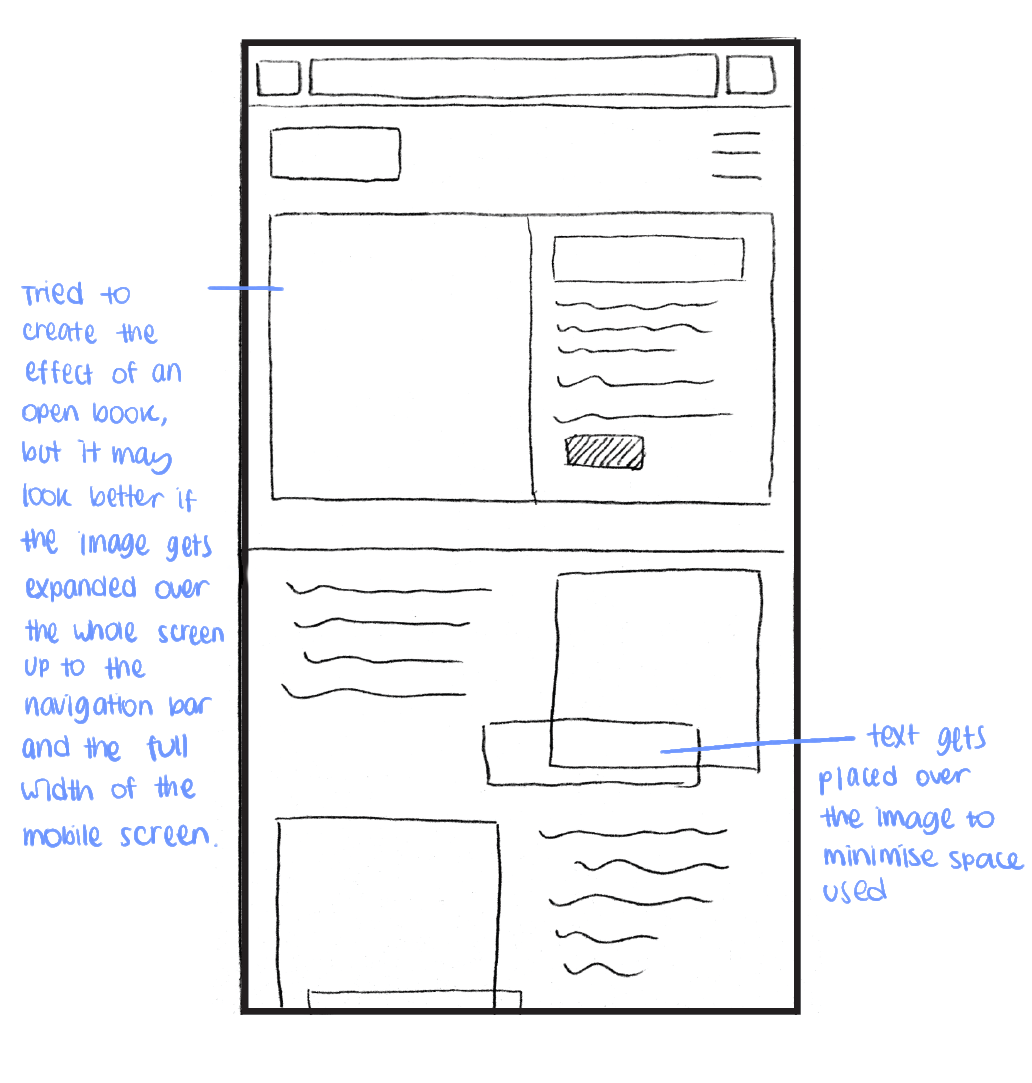 Tried to
create the
effect of an
open book,
but it may
look better if
the image gets
expanded over
the whole screen
up to the
navigation bar
and the full
width of the
mobile screen.
text gets
placed over
the image to
minimise space
used